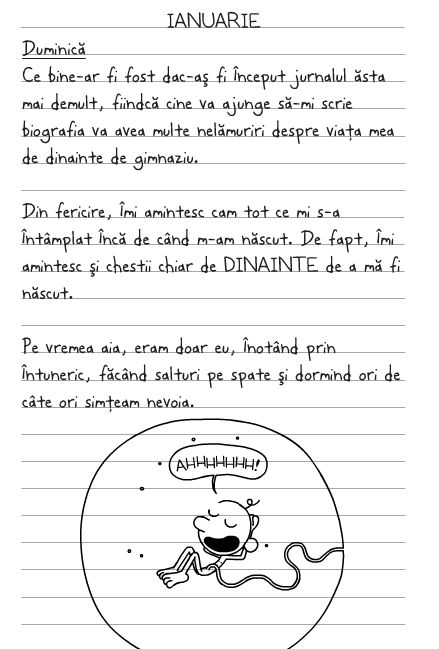 IANUARIE
Duminică
Ce bine-ar fi fost dac-aş fi început jurnalul ăsta
mai demult, fiindcă cine va ajunge să-mi scrie
biografia va avea multe nelămuriri despre viaţa mea
de dinainte de gimnaziu.
Din fericire, îmi amintesc cam tot ce mi s-a
întâmplat încă de când m-am născut. De fapt, îmi
amintesc şi chestii chiar de DINAINTE de a mă fi
născut.
Pe vremea aia, eram doar eu, înotând prin
întuneric, făcând salturi pe spate şi dormind ori de
câte ori simţeam nevoia.
AHHHHHHH!